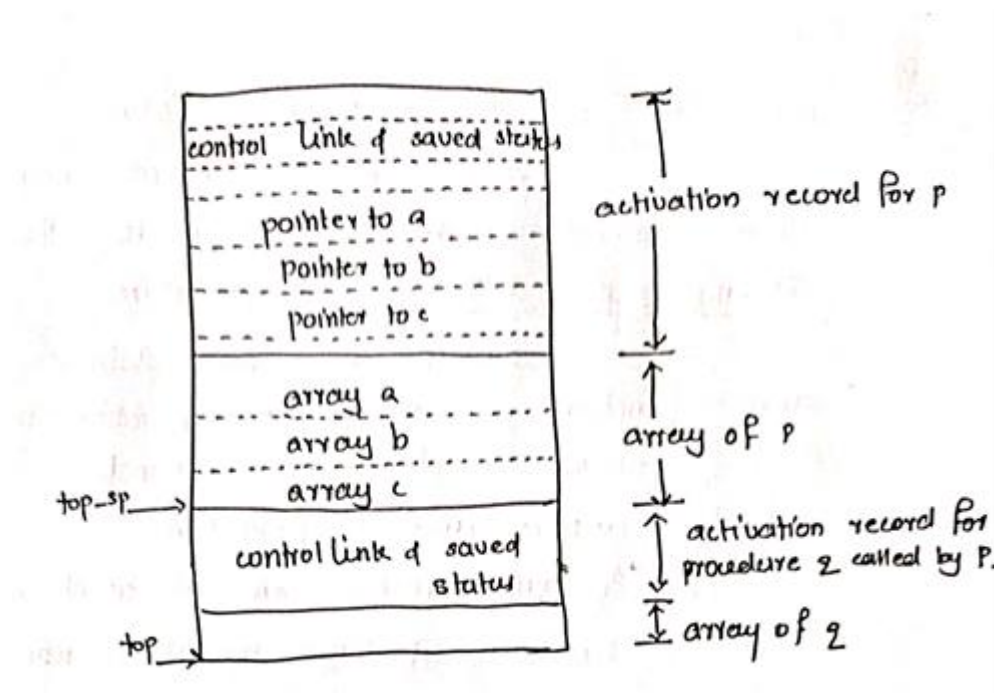 control Link & saved status
pointer to a
pointer to b
pointer to c
array a
array b
array c
top-sp
control Link & saved
status
top
activation record for p
array of p
activation record for
procedure q called by P.
array of q